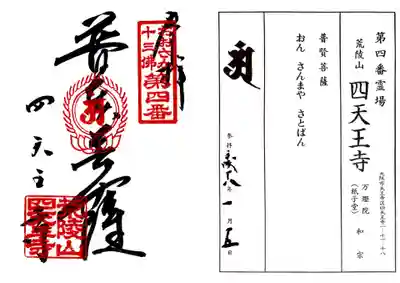 第四番霊場
荒陵山 四天王寺
大阪市天王寺区四天王寺一-十一-十八
万燈院 和宗
(紙子堂)
普賢菩薩
おん さんまや さとばん
参拝 平成十八年 一月 五日
奉拝
おおさか
十三佛
第四番
普賢菩薩
四天王寺
荒陵山
四天王寺